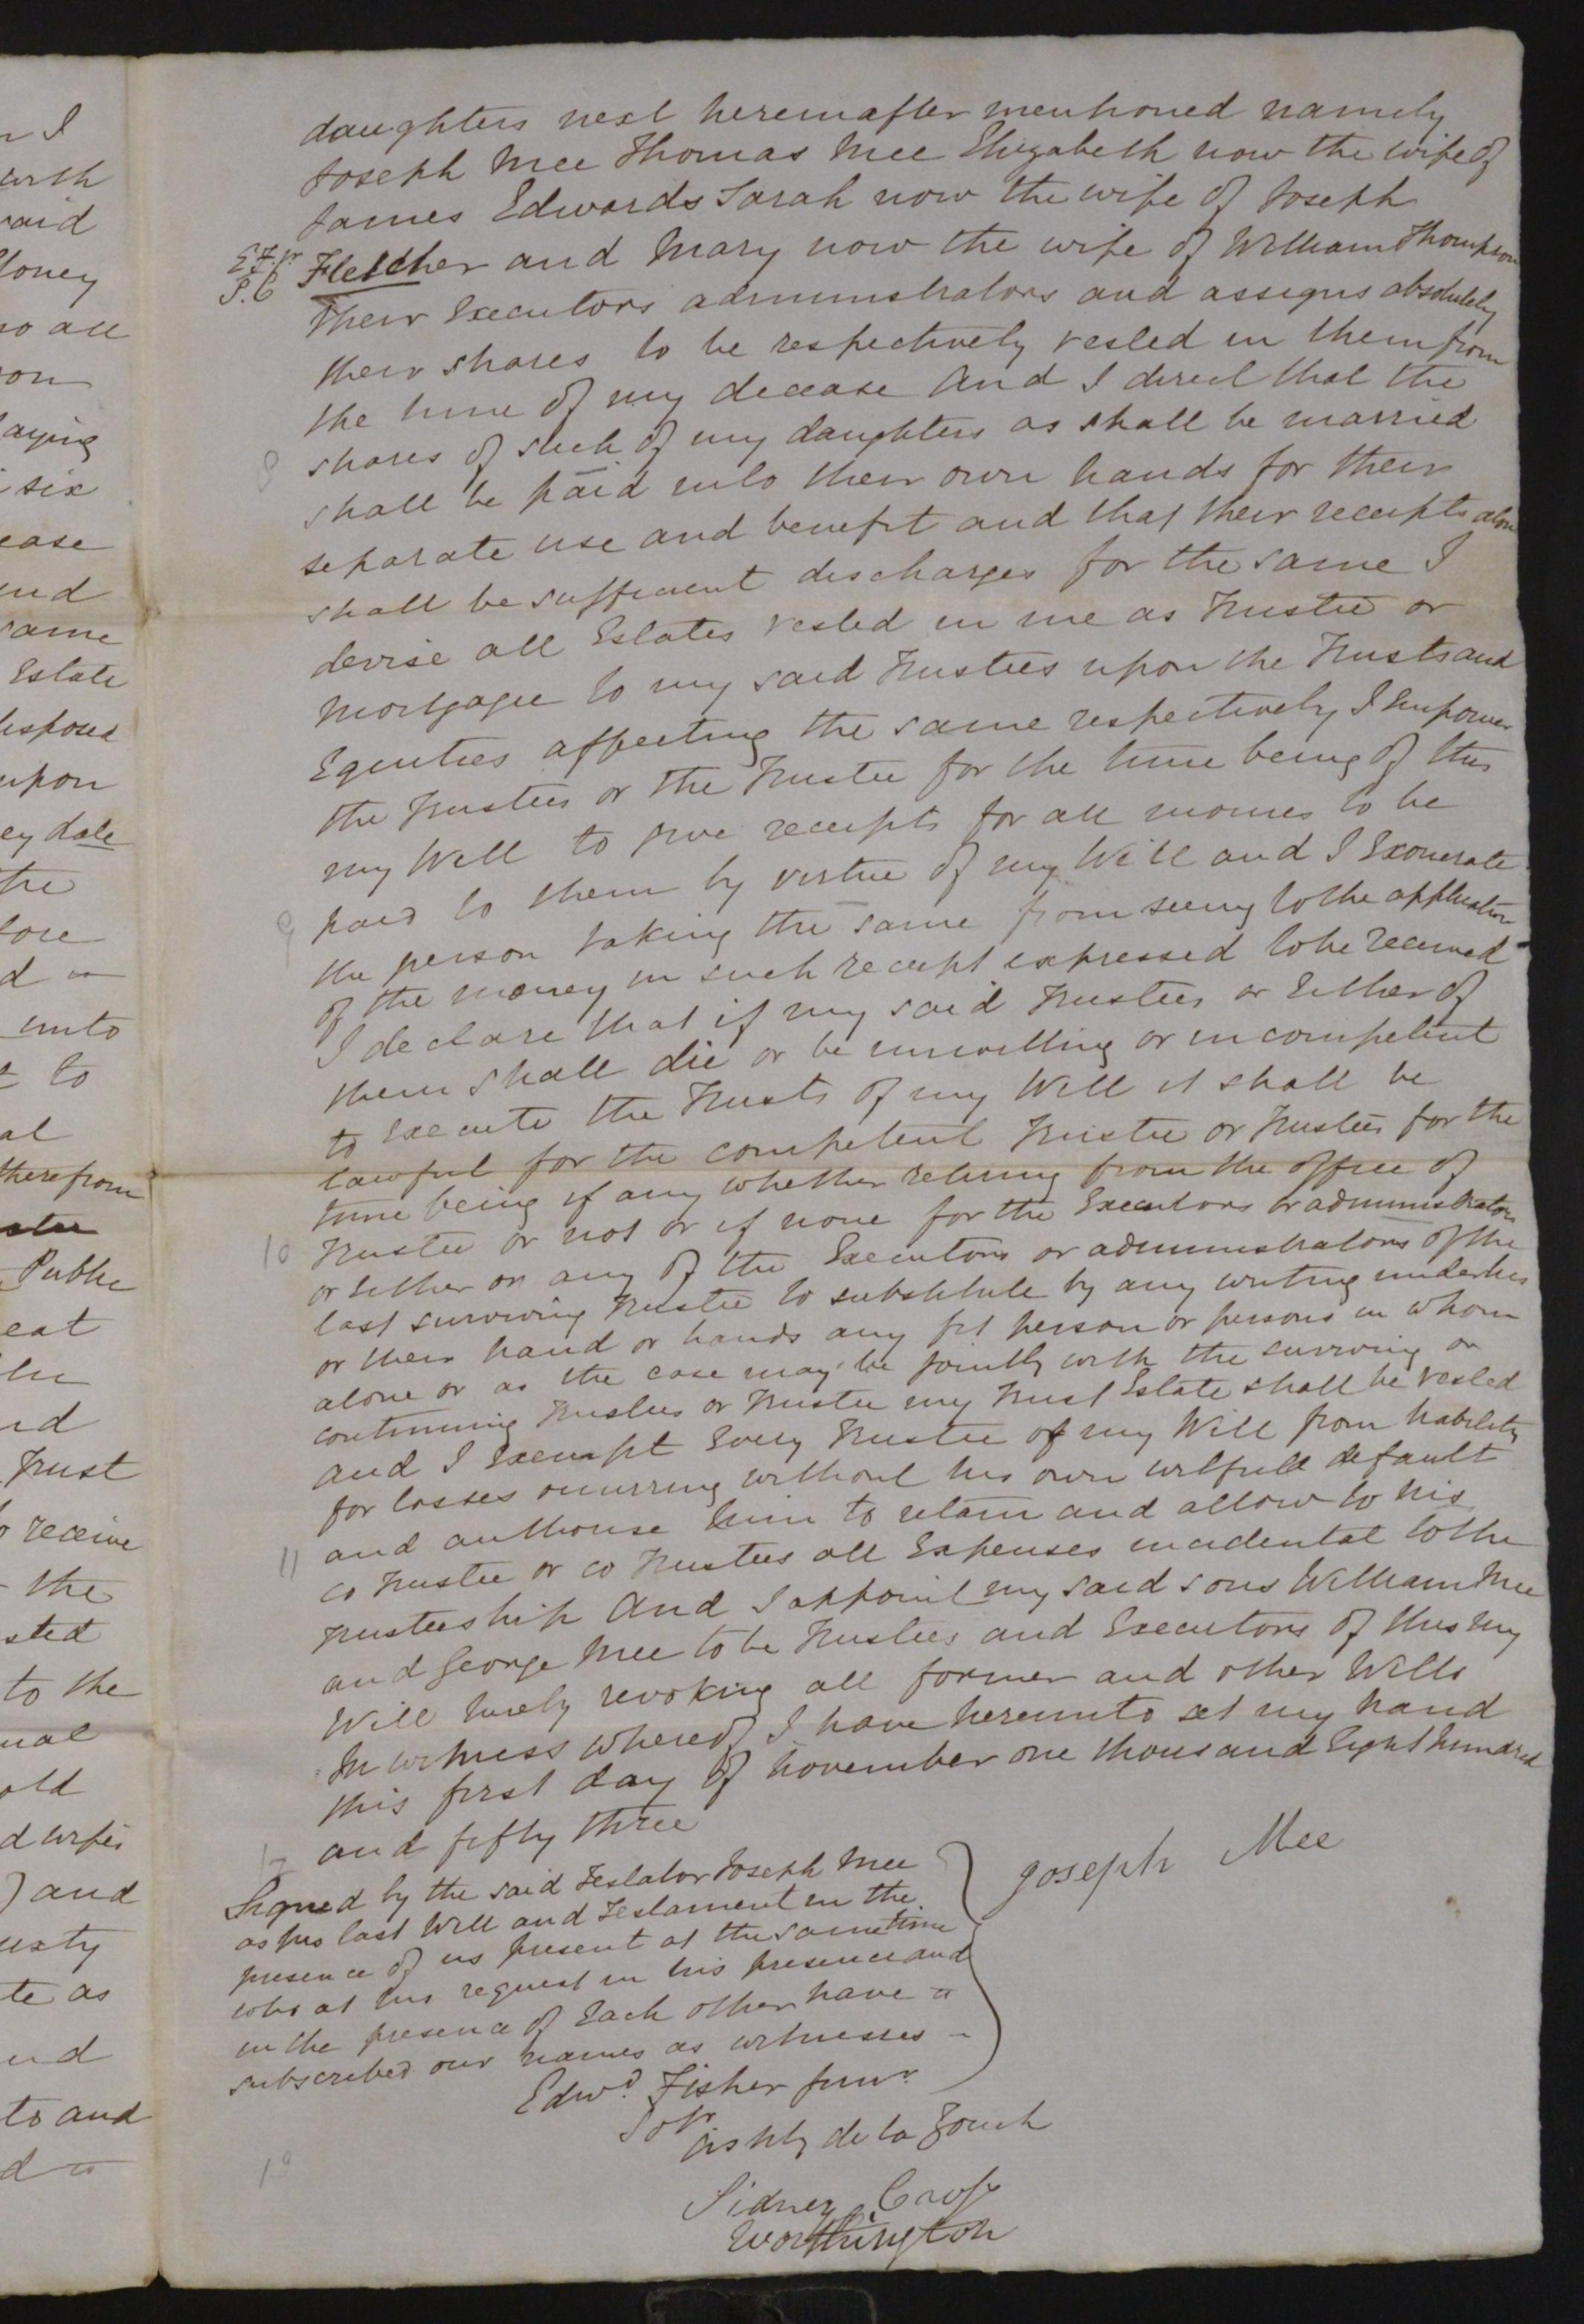 n I
with
said
Money
so all
son
aying
six
ease
and
same
Estate
disposed
upon
ey date
the
fore
d
unto
t to
al
therefrom
Public
eat
the
nd
Trust
o receive
the
sted
to the
ual
old
d wifes
) and
ixty
te as
nd
ts and
d
daughters next hereinafter mentioned namely
Joseph Mee Thomas Mee Elizabeth now the wife of
James Edwards Sarah now the wife of Joseph
E.F. jr Fletcher and Mary now the wife of William Thompson
S.C their Executors administrators and assigns absolutely
their shares to be respectively vested in them from
the time of my decease And I direct that the
8 shares of such of my daughters as shall be married
shall be paid into their own hands for their
separate use and benefit and that their receipts alone
shall be sufficient discharges for the same I
devise all Estates vested in me as Trustee or
Mortgagee to my said Trustees upon the Trusts and
Equities affecting the same respectively I Empower
the Trustees or the Trustee for the time being of this
my Will to give receipts for all monies to be
9 paid to them by virtue of my Will and I Exonerate
the person taking the same from seeing to the application
of the money in such receipt expressed to be received
I declare that if my said Trustees or Either of
them shall die or be unwilling or incompetent
to Execute the Trusts of my Will it shall be
lawful for the competent Trustee or Trustees for the
time being if any whether retiring from the office of
10 Trustee or not or if none for the Executors or administrators
or Either or any of the Executors or administrators of the
last surviving Trustee to substitute by any writing under his
or their hand or hands any fit person or persons in whom
alone or as the case may be jointly with the surviving or
continuing Trustees or Trustee my Trust Estate shall be vested
and I Exempt Every Trustee of my Will from liability
for losses occurring without his own wilfull default
11 and authorise him to retain and allow to his
co Trustee or co Trustees all Expenses incidental to the
Trusteeship And I appoint my said sons William Mee
and George Mee to be Trustees and Executors of this my
Will hereby revoking all former and other Wills
In witness whereof I have hereunto set my hand
this first day of November one thousand Eight hundred
12 and fifty three
Signed by the said Testator Joseph Mee
as his last Will and Testament in the
presence of us present at the same time
who at his request in his presence and
in the presence of Each other have
subscribed our names as witnesses
Joseph Mee
Edwd. Fisher junr.
Solr
Ashby de la Zouch
Sidney Crofs
Worthington